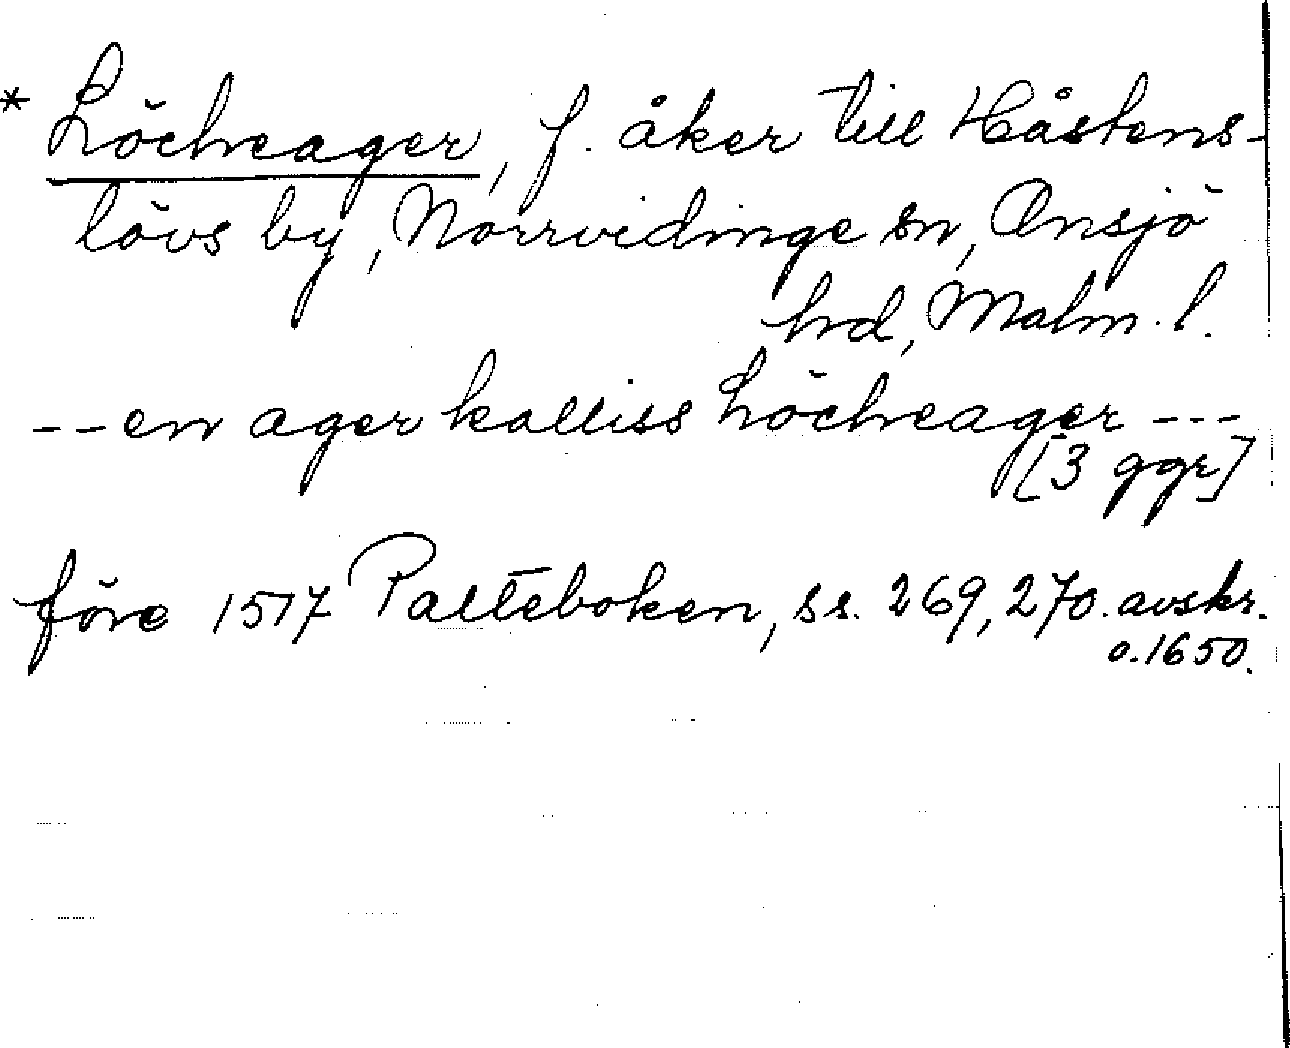 * Löcheager, f. åker till Håstens-
lövs by, Norrvidinge sn, Onsjö
hrd, Malm. l.
-- en ager kalliss Löcheager ---
[3 ggr]
före 1517 Palteboken, ss. 269, 270. avskr.
o. 1650.